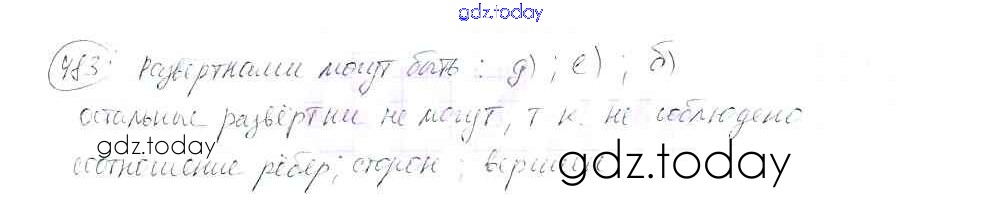 gdz.today
483. Развёртками могут быть: д); е); б)
остальные развёртки не могут, т к. не соблюдено
gdz.today
соотношение рёбер; сторон; вершин
gdz.today